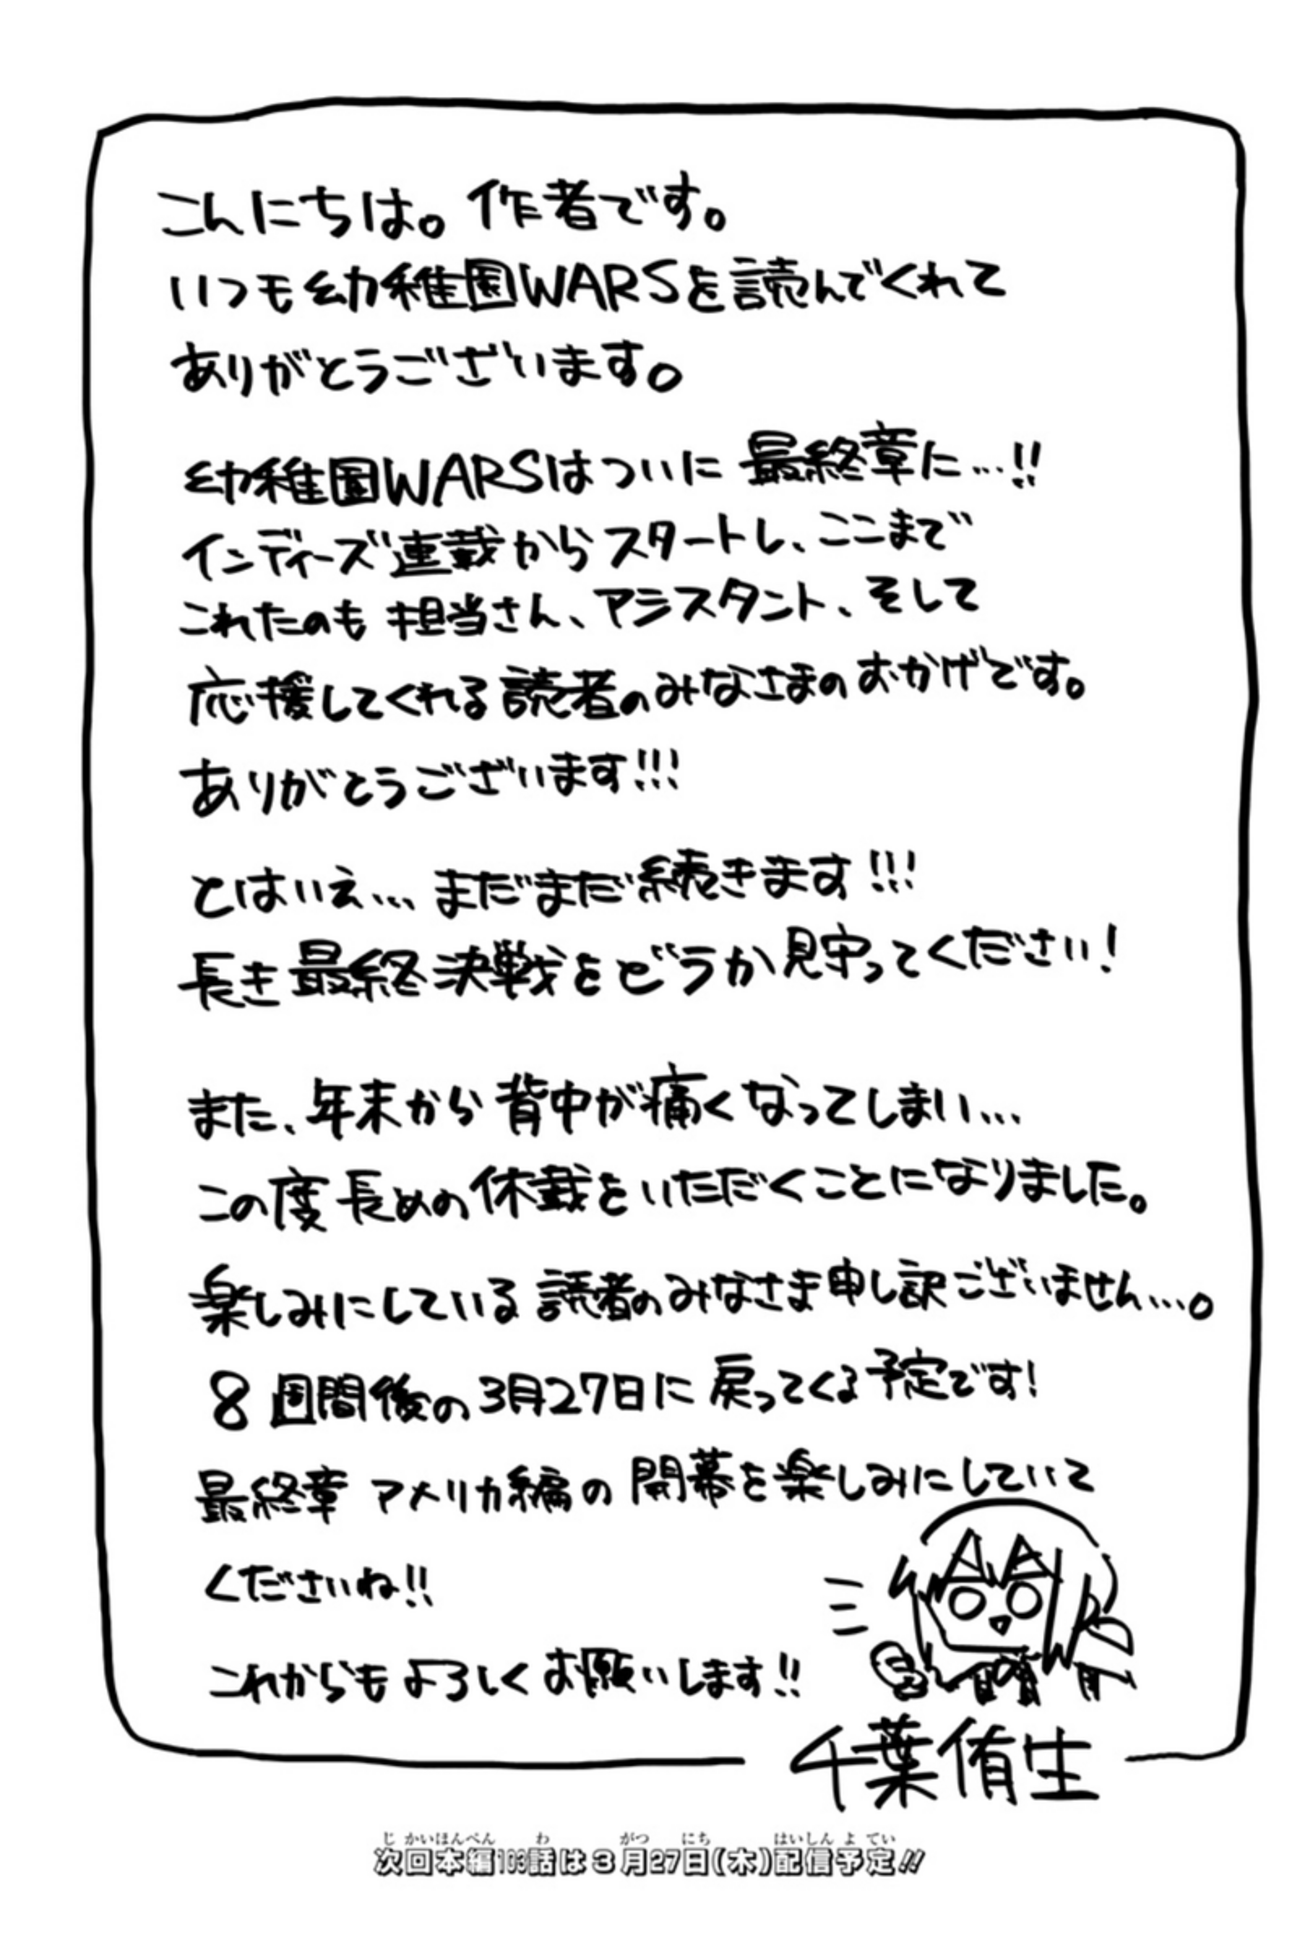 こんにちは。作者です。
いつも幼稚園WARSを読んでくれて
ありがとうございます。
幼稚園WARSはついに最終章に…!!
インディーズ連載からスタートし、ここまで
これたのも担当さん、アシスタント、そして
応援してくれる読者のみなさまのおかげです。
ありがとうございます!!!
とはいえ…まだまだ続きます!!!
長き最終決戦をどうか見守ってください!
また、年末から背中が痛くなってしまい…
この度長めの休載をいただくことになりました。
楽しみにしている読者のみなさま申し訳ございません…。
8週間後の3月27日に戻ってくる予定です!
最終章 アメリカ編の開幕を楽しみにしていて
くださいね!!
これからもよろしくお願いします!!
千葉侑生
じかいほんぺん わ がつ にち はいしんよてい
次回本編103話は3月27日(木)配信予定!!